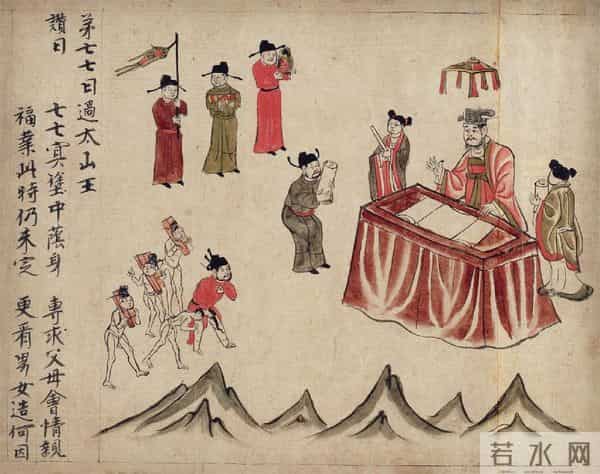 第七七日過太山王
讚曰
七七冥塗中蔭身 專求父母會情親
福業此時仍未定 更看男女造何因
若水网